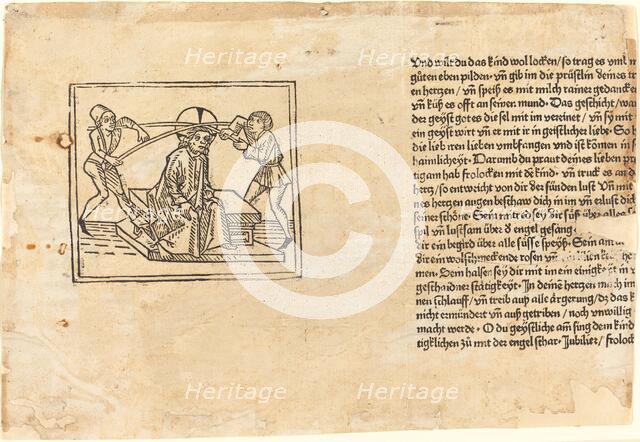 Vnd wilt du das kind wol locken/so trag es vmb in
gůten eben pilden· vñ gib im die prüstlin deines
en hertzen/vñ speiß es mit milch rainer gedancken
vñ küß es offt an seinen mund·Das geschicht/wañ
der geyst gotes die sel mit im vereinet/vñ sy mit
ein geyst wirt vñ et mit ir in geistlicher liebe·So
die lieb iren lieben vmbfangen/vnd ist komen in
haimlicheyt·Darumb du praut deines lieben
tigam hab frolocken mit dē kind·vñ truck es an
hertz/so entweicht von dir der sünden lust Vñ mit
nes hertzen augen beschaw dich in im vñ erlust dich
seiner schöne·Sein red sey dir süß über alles
spil vñ lustsam über ð engel gesang·
dir ein begird über alle süsse speyß·Sein
dir ein wolschmeckende rosen vñ
men·Dein halsen sey dir mit im ein
geschaidner stätigkeyt·In deinē hertzen mach im
nen schlauff/vñ treib auß alle ärgerung/dz das
nicht ermündert vñ auß getriben/noch vnwillig
macht werde·O du geystliche am sing dem kind
tigklichen zů mit der engel schar·Jubilier/frolock
Heritage
Heritage
Heritage
Heritage
Heritage
Heritage
Heritage
Heritage
©